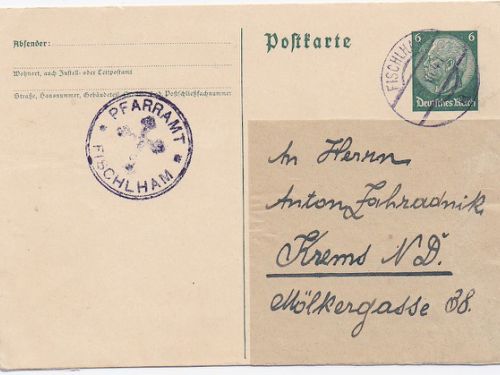 Absender:
Wohnort, auch Zustell- oder Leitpostamt
Straße, Hausnummer, Gebäudeteil, Postschließfachnummer
PFARRAMT
FISCHLHAM
Postkarte
6 6
FISCHLHAM
Deutsches Reich
An Herrn
Anton Zahradnik
Krems N.D.
Mölkergasse 38.